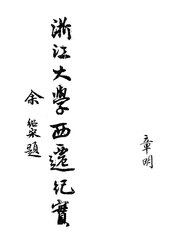 浙江大學西遷紀實
余紹宋題
章明